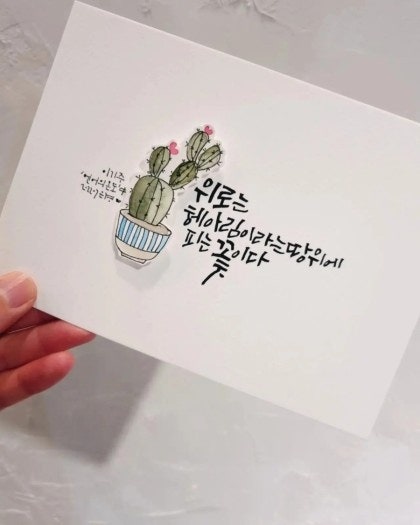 이기주
'언어의 온도'
위로는
헤아림이라는 땅 위에
피는 꽃이다